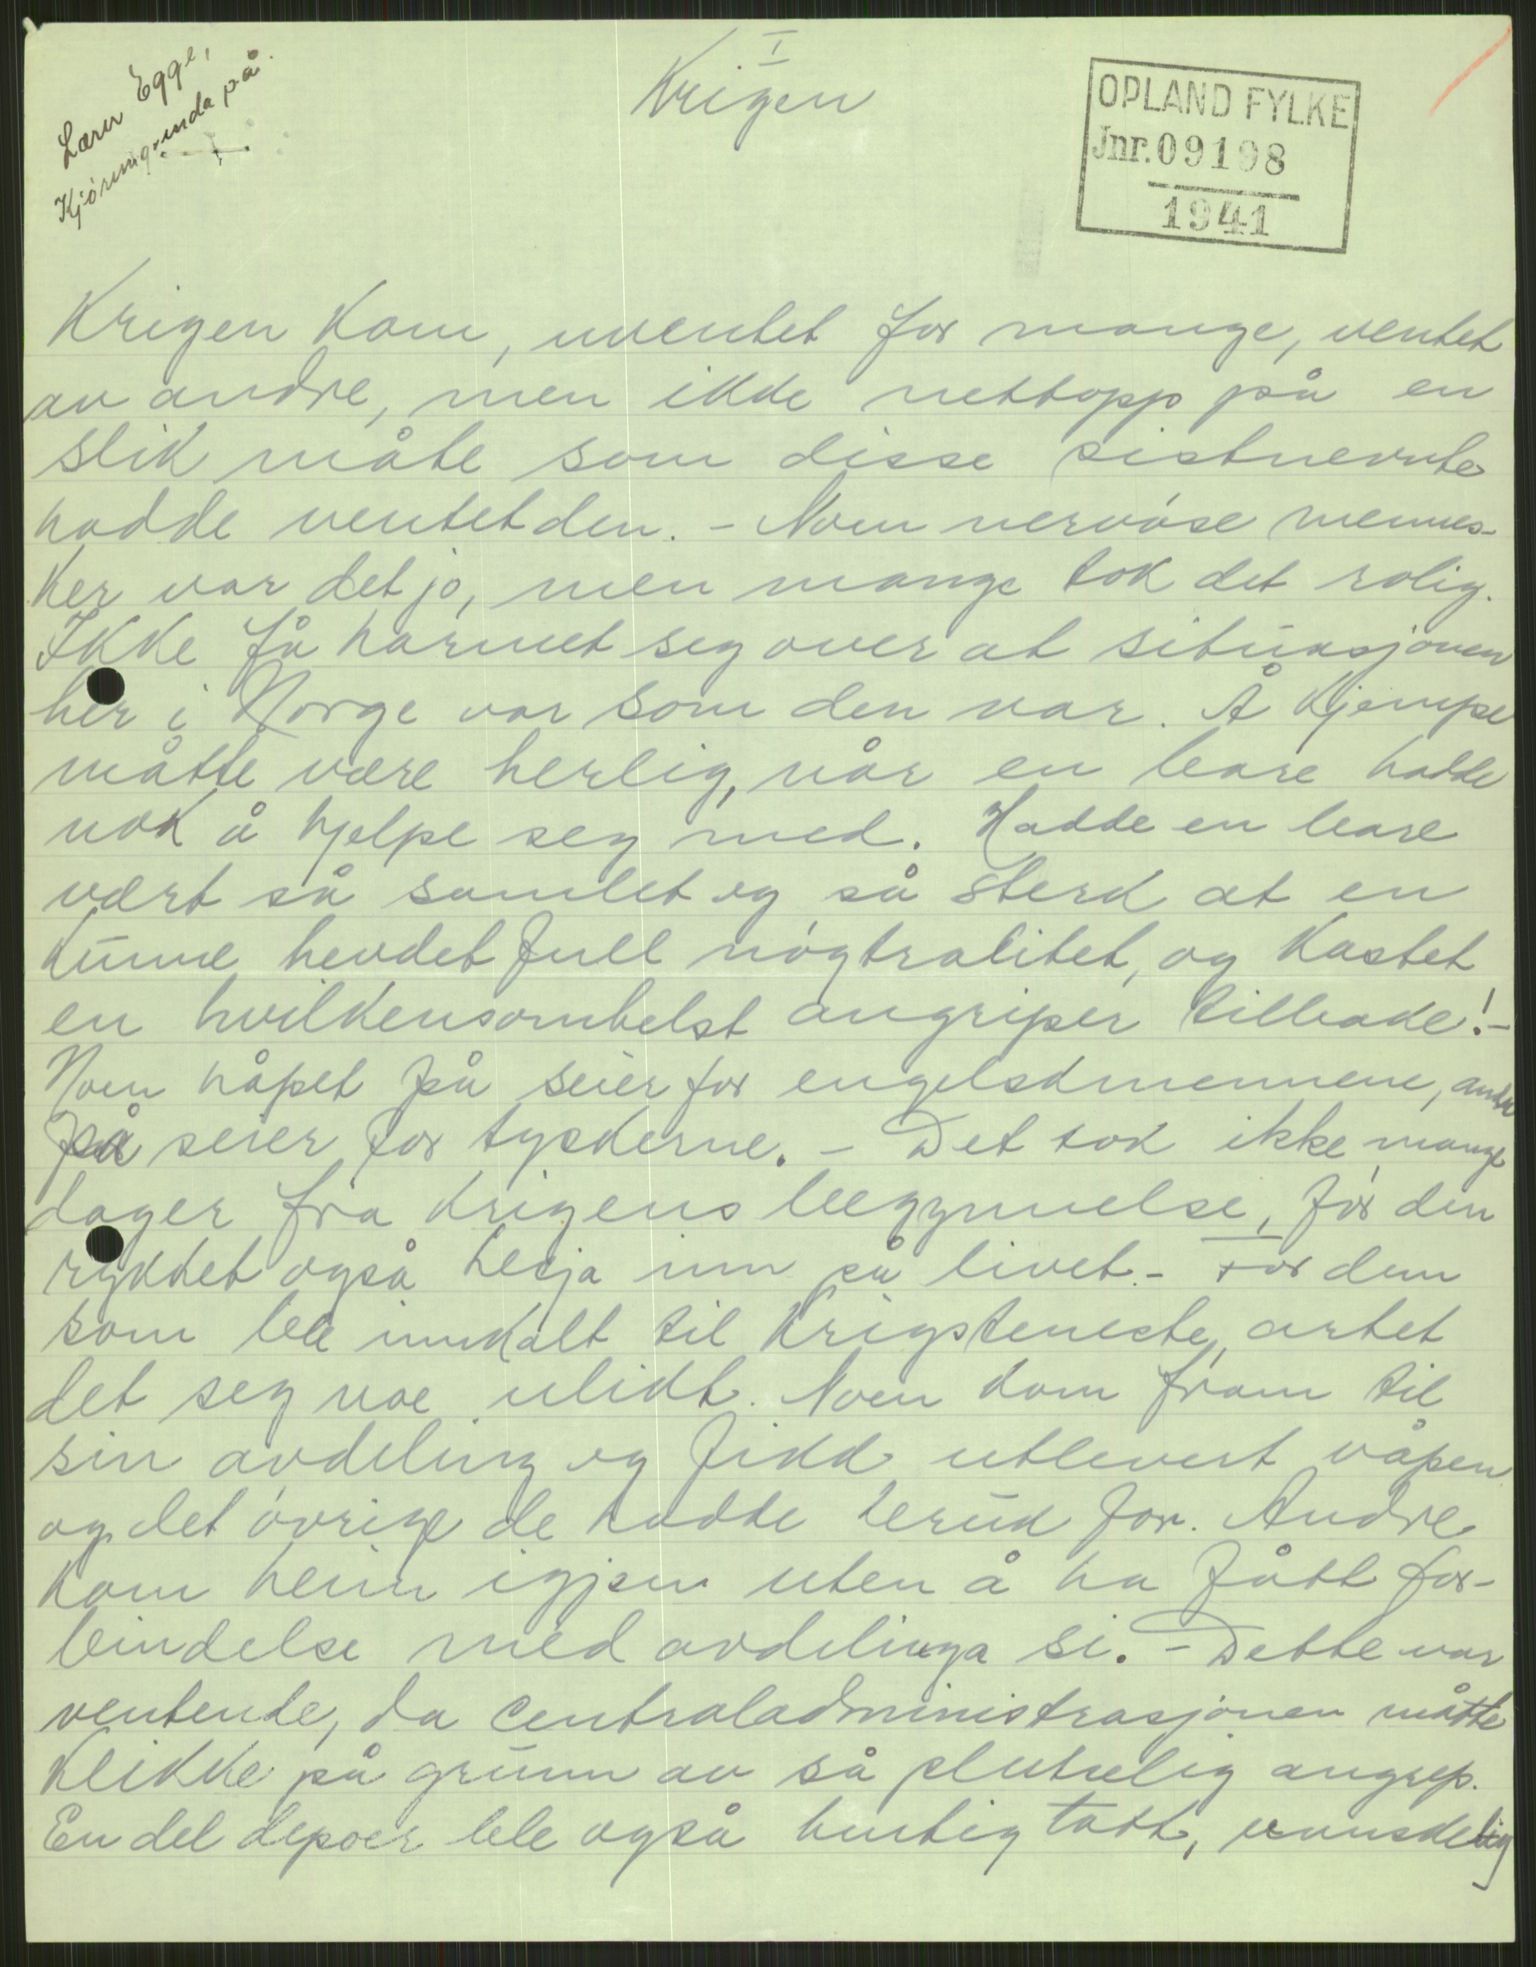 Lærer Egge,
Kjøremgrenda på
I
Krigen
OPLAND FYLKE
Jnr. 09198
1941
Krigen kom, uventet for mange, ventet
av andre, men ikke nettopp på en
slik måte som disse sistnevnte
hadde ventet den. - Noen nervøse mennes-
ker var det jo, men mange tok det rolig.
Ikke få harmet seg over at situasjonen
her i Norge var som den var. Å kjempe
måtte være herlig, når en bare hadde
nok å hjelpe seg med. Hadde en bare
vært så samlet og så sterk at en
kunne hevdet full nøgtralitet, og kastet
en hvilkensomhelst angriper tilbake! -
Noen håpet på seier for engelskmennene, andre
på seier for tyskerne. - Det tok ikke mange
dager fra krigens begynnelse, før den
rykket også Lesja inn på livet. - For dem
som ble innkalt til krigsteneste, artet
det seg noe ulikt. Noen kom fram til
sin avdeling og fikk utlevert våpen
og det øvrige de hadde bruk for. Andre
kom heim igjen uten å ha fått for-
bindelse med avdelinga si. - Dette var
ventende, da centraladministrasjonen måtte
klikke på grunn av så plutselig angrep.
En del depoer ble også hurtig tatt, vanskelig